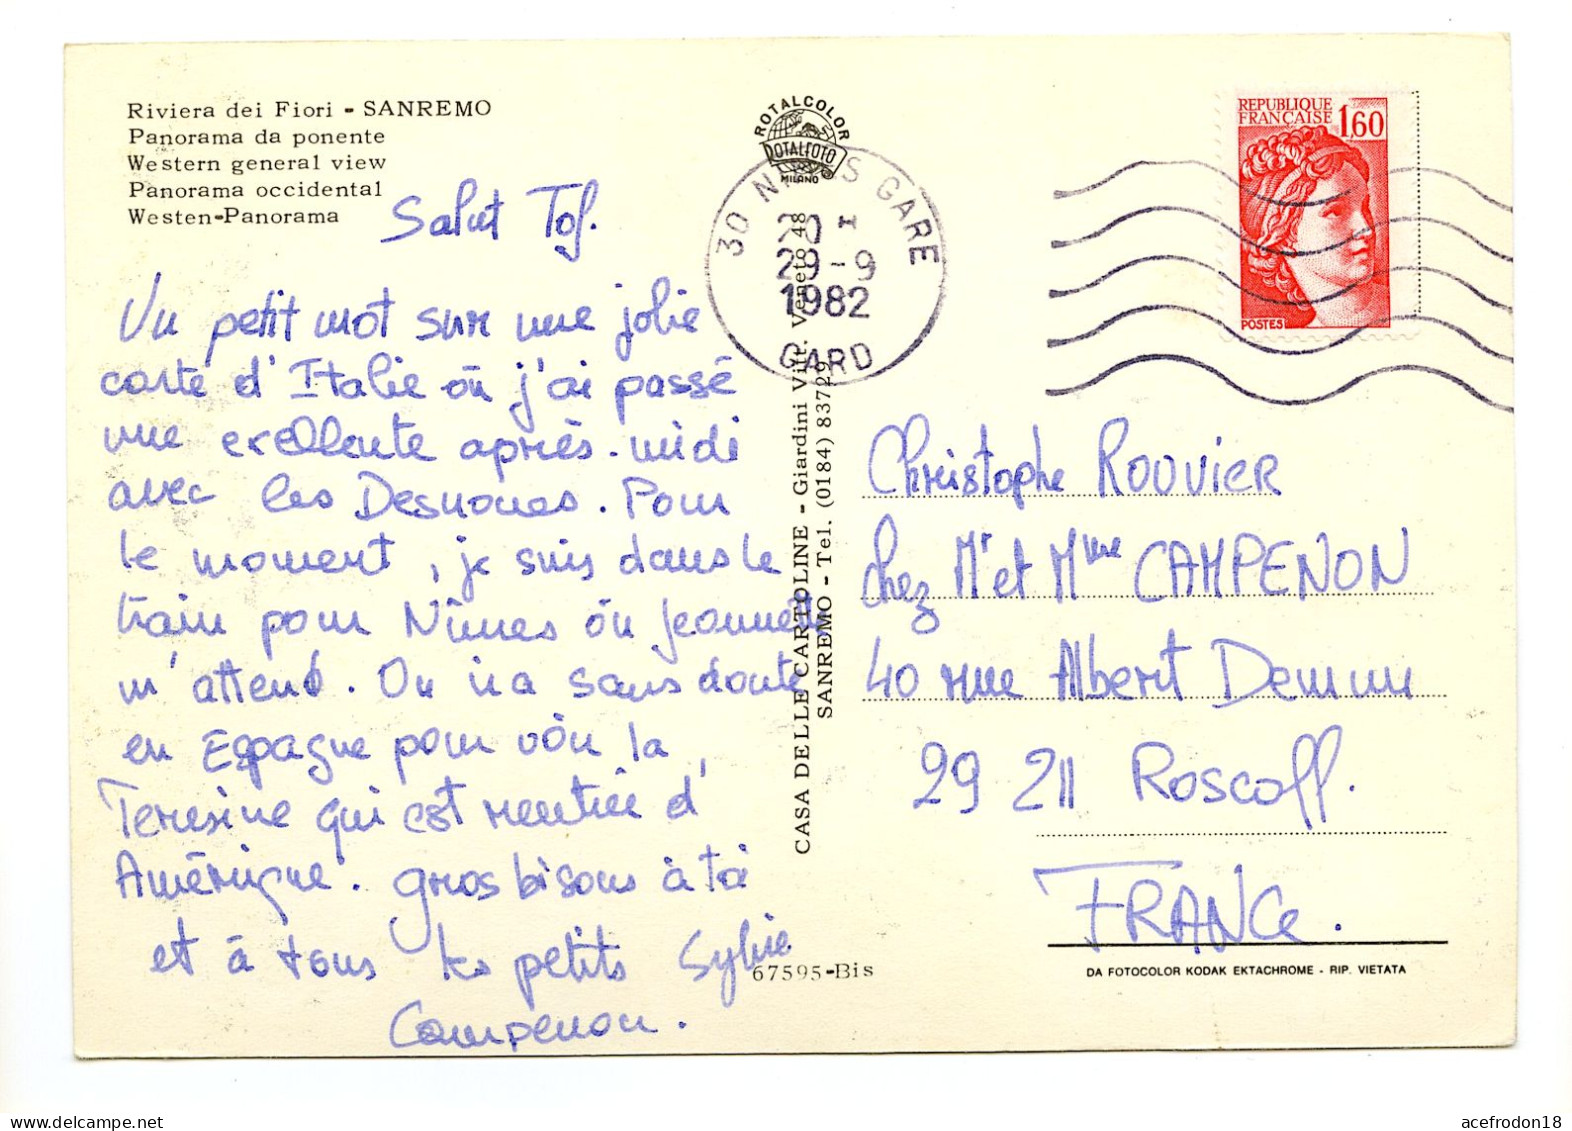 Riviera dei Fiori - SANREMO
Panorama da ponente
Western general view
Panorama occidental
Westen-Panorama
Salut Tof.
Un petit mot sur une jolie
carte d'Italie où j'ai passé
une excellente après-midi
avec les Desnoues. Pour
le moment, je suis dans le
train pour Nîmes où Jeannette
m'attend. On ira sans doute
en Espagne pour voir la
Teresine qui est rentrée d'
Amérique. Gros bisous à toi
et à tous les petits Sylvie
Campenon.
ROTALCOLOR
ROTALFOTO
MILANO
30 NIMES GARE
20 H
29-9
1982
GARD
CASA DELLE CARTOLINE - Giardini Vitt. Veneto 48
SANREMO - Tel. (0184) 83729
67595-Bis
REPUBLIQUE
FRANÇAISE 1,60
POSTES
Christophe ROUVIER
chez Mr et Mme CAMPENON
40 rue Albert Demun
29 211 Roscoff.
FRANCE.
DA FOTOCOLOR KODAK EKTACHROME - RIP. VIETATA
acefrodon18